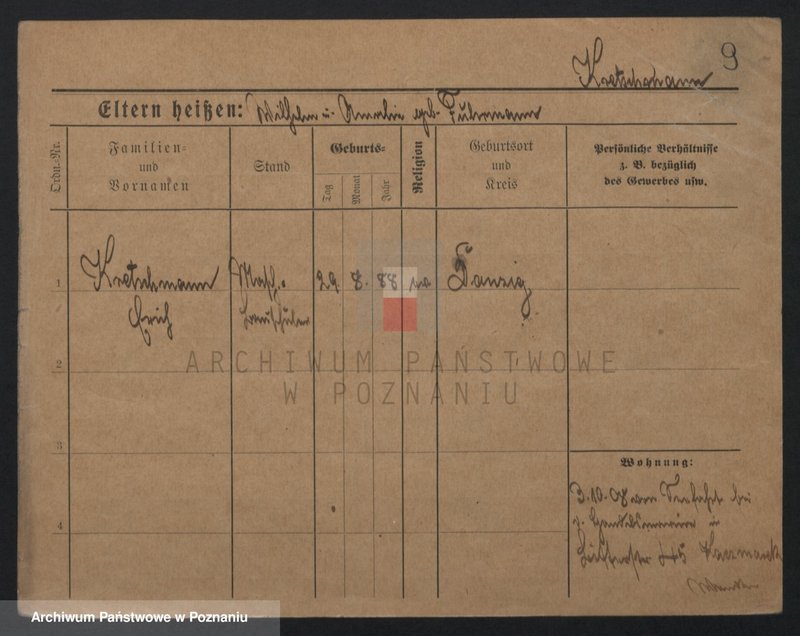 9
Kretschmann
Eltern heißen: Wilhelm u. Amalie geb. Fuhrmann
Ordn.-Nr.
Familien- und Vornamen
Stand
Geburts-
Tag
Monat
Jahr
Religion
Geburtsort und Kreis
Persönliche Verhältnisse
z. B. bezüglich
des Gewerbes usw.
1
Kretschmann
Erich
Masch.-
bauschüler
29. 8. 88
Danzig
2
3
4
ARCHIWUM PAŃSTWOWE
W POZNANIU
Wohnung:
3.10.08 von Seefahrt bei
Kaczmarek
Archiwum Państwowe w Poznaniu